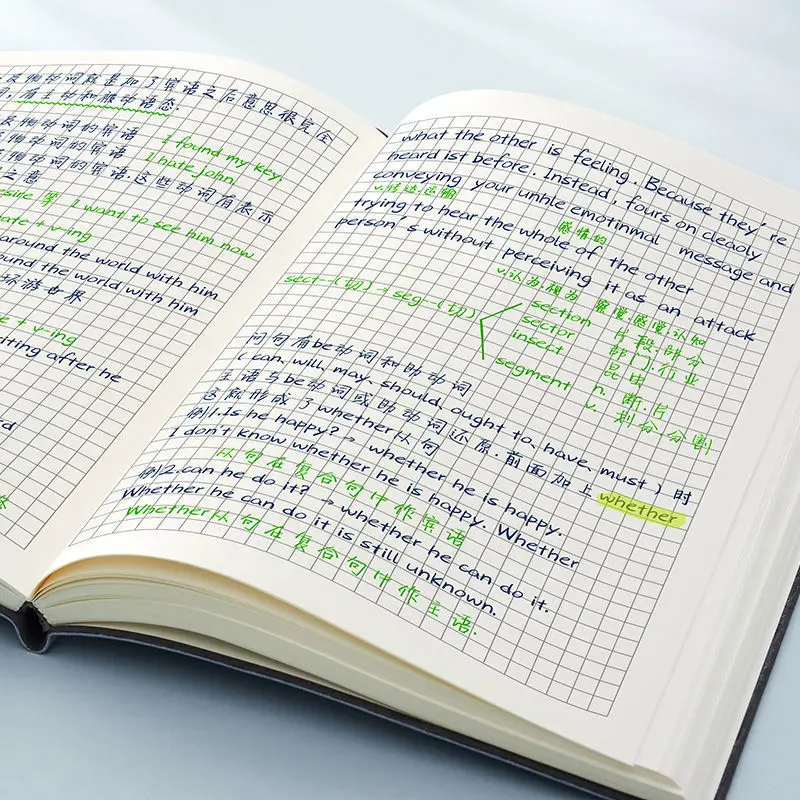 及物动词就是加了宾语之后意思很完全
有主动和被动语态.
及物动词的宾语
物动词的宾语
I found my key.
物动词的宾语.这些动词有表示
I hate John.
之意
I want to see him now
ate + v-ing
around the world with him
ound the world with him
环游世界
e + v-ing
iting after he
what the other is feeling. Because they're
heard ist before. Instead, fours on cleaoly
conveying your unhle emotinmal message and
v.传达.运输
感情的
trying to hear the whole of the other
person's without perceiving it as an attack
v.认为,视为 察觉.感觉.认知
sect-(切) seg-(切)
section 片段.部分
sector 部门.行业
insect 昆虫
segment n. 断.片
v. 划分.分割
问句有be动词和助动词
( can, will, may, should, ought to, have, must ) 时
主语与be动词或助动词还原.前面加上 whether
这就形成了whether从句
例1.Is he happy? → whether he is happy.
I don't know whether he is happy. Whether
从句在复合句中作宾语
例2.can he do it? → whether he can do it.
Whether he can do it is still unknown.
Whether从句在复合句中作主语.